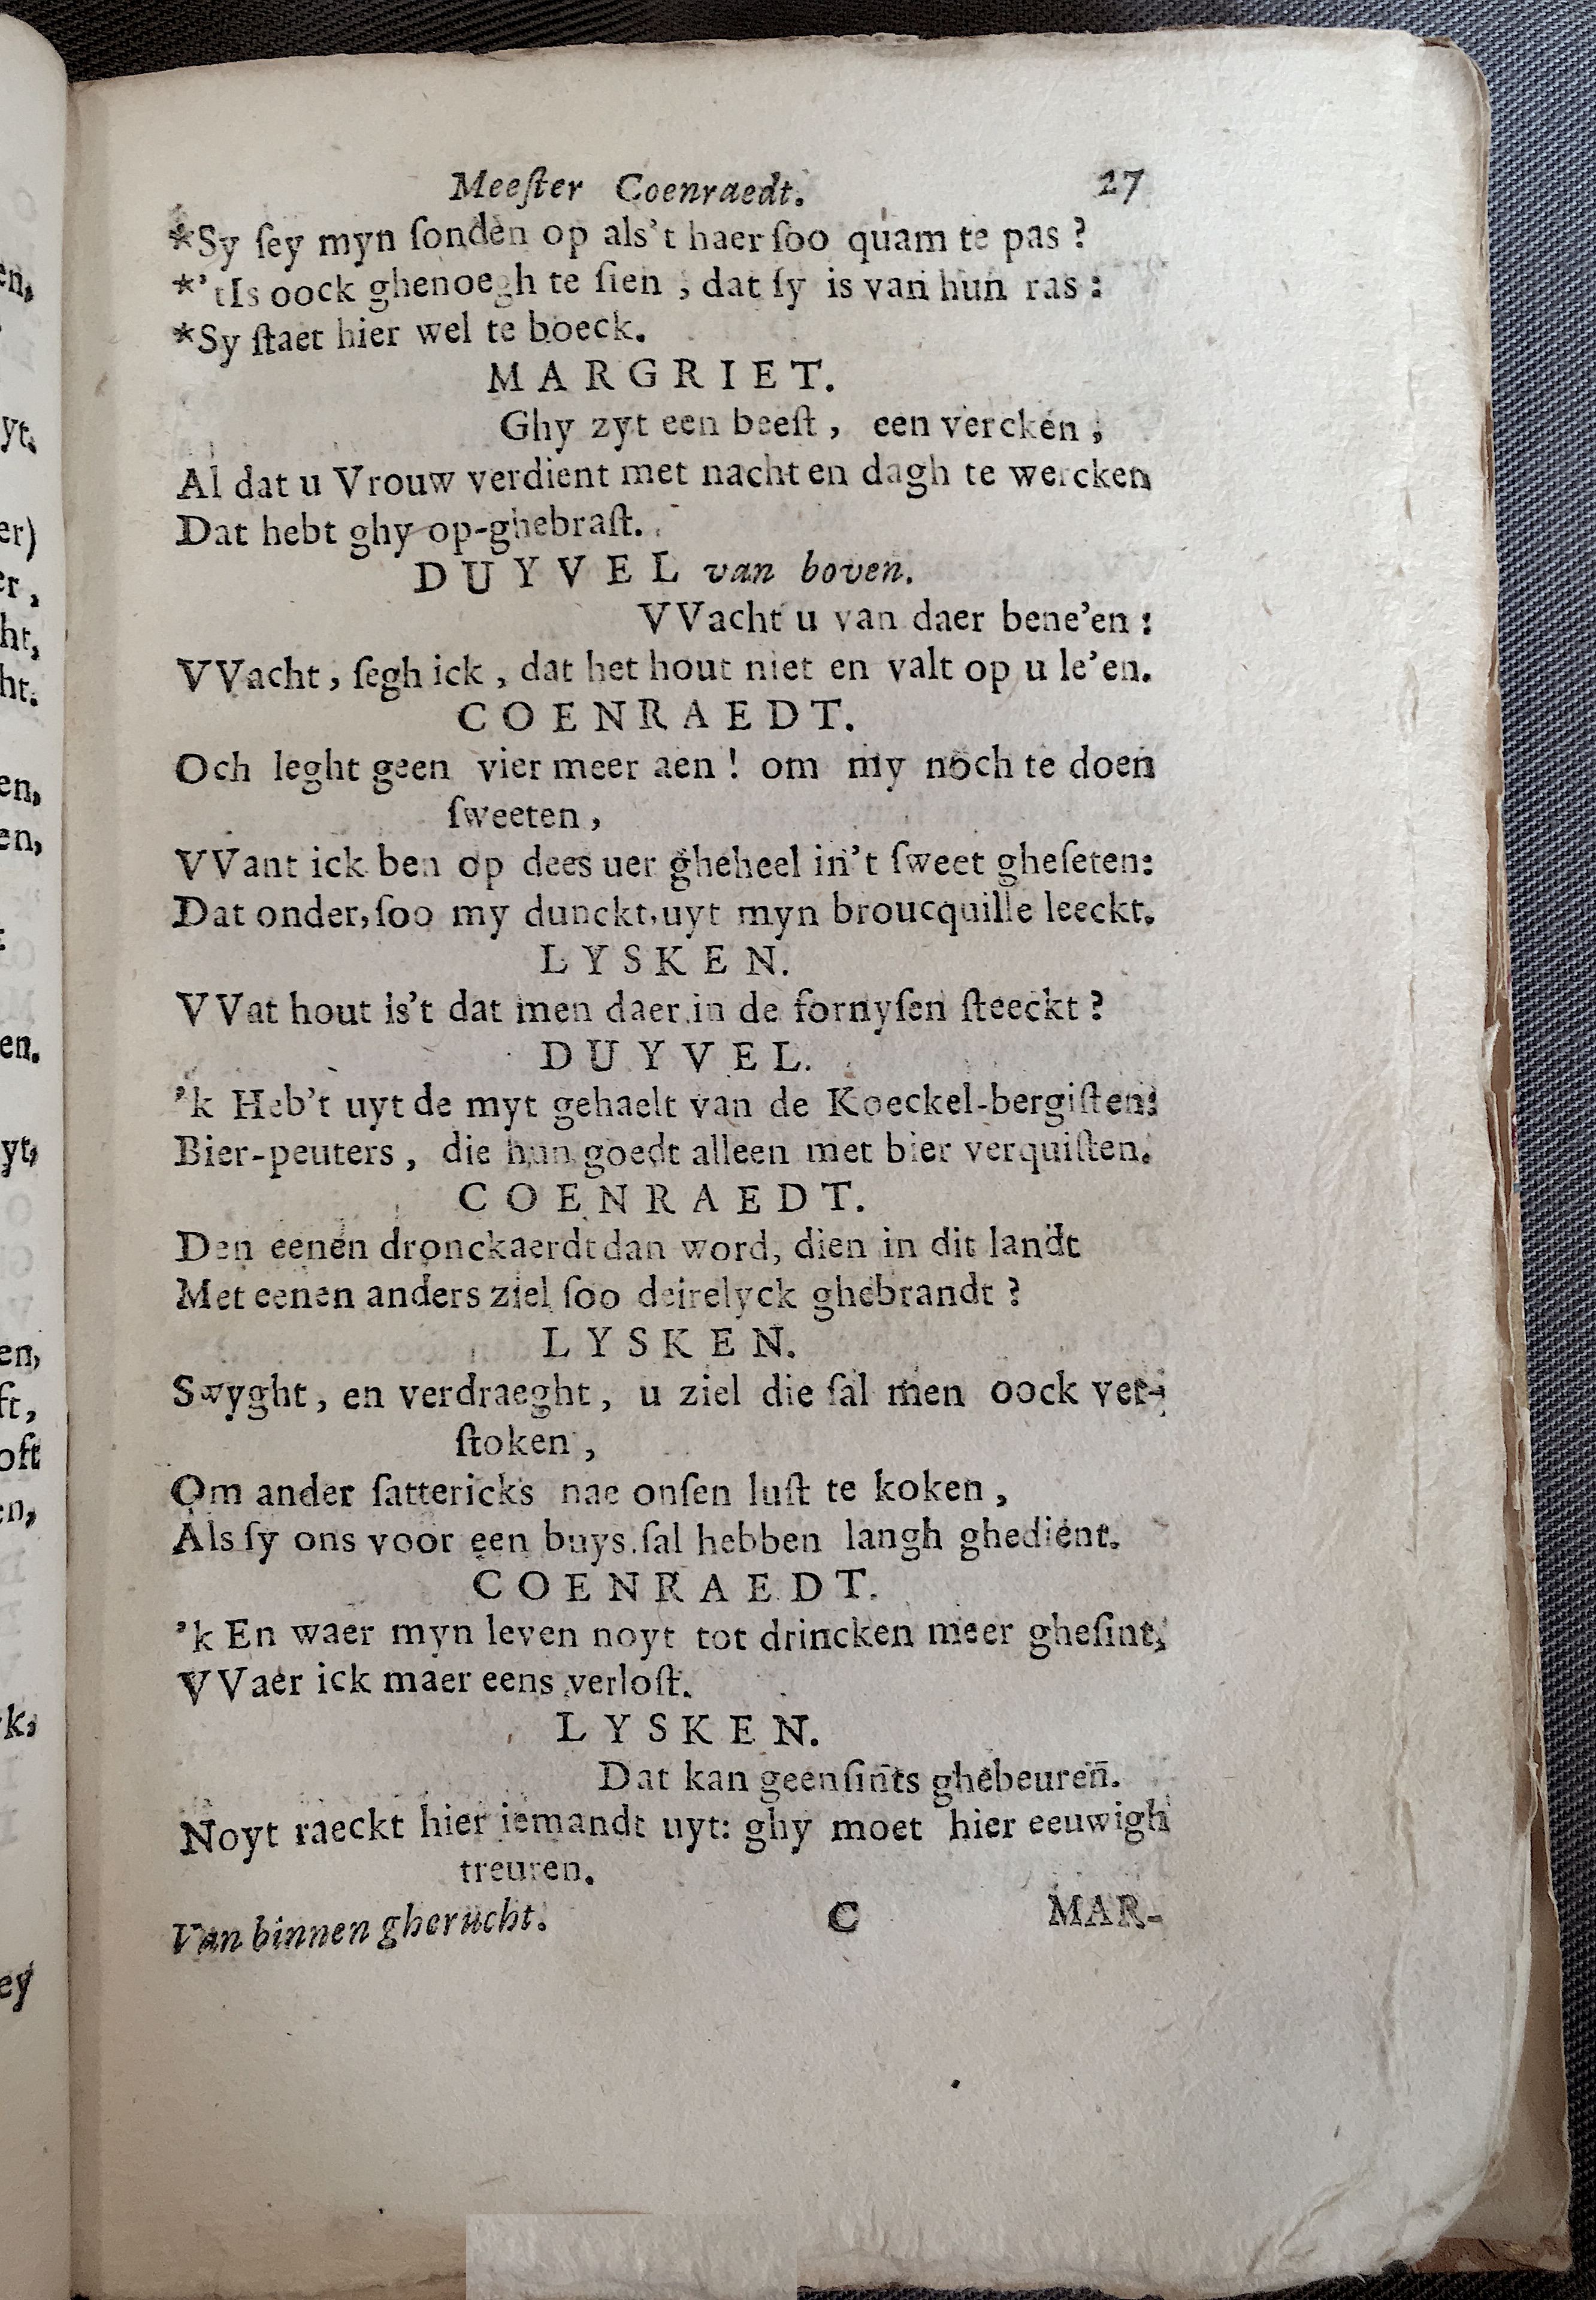 Meeſter Coenraedt. 27
*Sy ſey myn ſonden op als't haer ſoo quam te pas ?
*'tIs oock ghenoegh te ſien , dat ſy is van hun ras :
*Sy ſtaet hier wel te boeck.
MARGRIET.
Ghy zyt een beeſt, een vercken ,
Al dat u Vrouw verdient met nacht en dagh te wercken
Dat hebt ghy op-ghebraſt.
DUYVEL van boven.
VVacht u van daer bene'en :
VVacht, ſegh ick , dat het hout niet en valt op u le'en.
COENRAEDT.
Och leght geen vier meer aen ! om my noch te doen
ſweeten ,
VVant ick ben op dees uer gheheel in't ſweet gheſeten:
Dat onder, ſoo my dunckt, uyt myn broucquille leeckt.
LYSKEN.
VVat hout is't dat men daer in de fornyſen ſteeckt ?
DUYVEL.
'k Heb't uyt de myt gehaelt van de Koeckel-bergiſten:
Bier-peuters , die hun goedt alleen met bier verquiſten.
COENRAEDT.
Den eenen dronckaerdt dan word, dien in dit landt
Met eenen anders ziel ſoo deirelyck ghebrandt ?
LYSKEN.
Swyght, en verdraeght, u ziel die ſal men oock ver-
ſtoken ,
Om ander ſattericks nae onſen luſt te koken ,
Als ſy ons voor een buys ſal hebben langh ghedient.
COENRAEDT.
'k En waer myn leven noyt tot drincken meer gheſint,
VVaer ick maer eens verloſt.
LYSKEN.
Dat kan geenſints ghebeuren̄.
Noyt raeckt hier iemandt uyt: ghy moet hier eeuwigh
treuren.
Van binnen gherucht. C MAR-